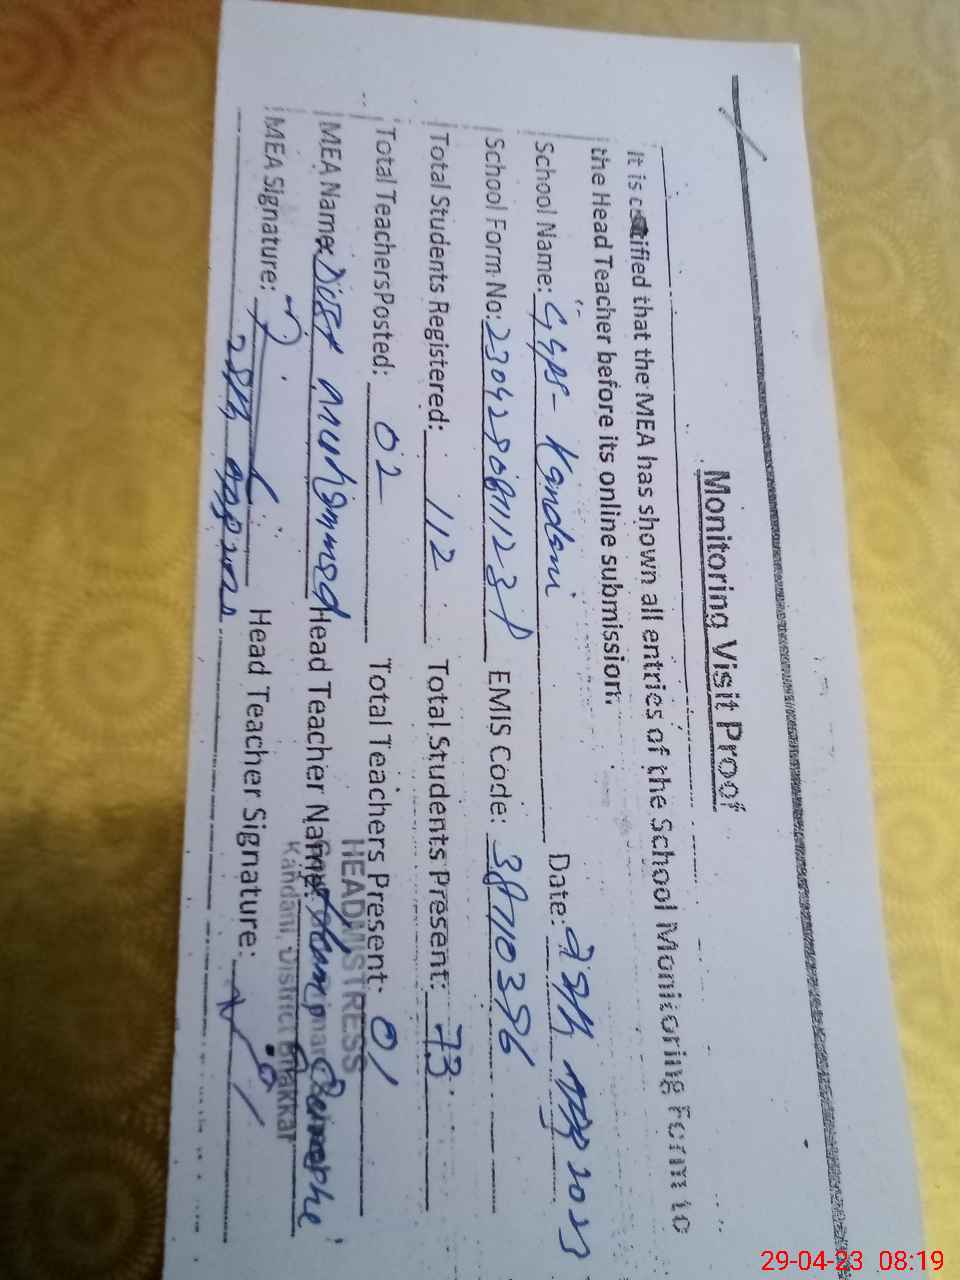 Monitoring Visit Proof
It is certified that the MEA has shown all entries of the School Monitoring Form to
the Head Teacher before its online submission.
School Name: GGPS- Kandani Date: 2023
School Form No: EMIS Code: 38710396
Total Students Registered: 112 Total Students Present: 73
Total TeachersPosted: 02 Total Teachers Present: 01
MEA Name: Muhammad Head Teacher Name:
HEADMISTRESS
Kandani, District Bhakkar
MEA Signature: Head Teacher Signature:
29-04-23 08:19